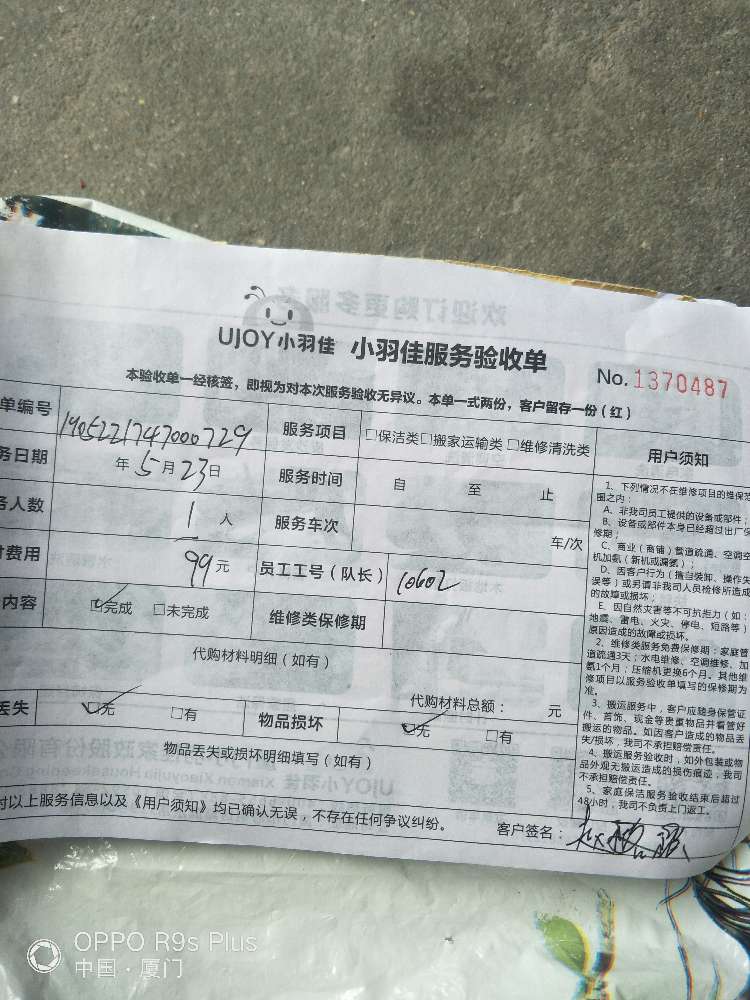 UJOY小羽佳 小羽佳服务验收单
No. 1370487
本验收单一经核签，即视为对本次服务验收无异议。本单一式两份，客户留存一份（红）
单编号 1905221747000729 服务项目 □保洁类□搬家运输类□维修清洗类
务日期 年 5月 23日 服务时间 自 至 止
务人数 1 人 服务车次 车/次
费用 99元 员工工号（队长） 10602
内容 ☑完成 □未完成 维修类保修期
代购材料明细（如有）
代购材料总额： 元
丢失 ☑无 □有 物品损坏 ☑无 □有
物品丢失或损坏明细填写（如有）
对以上服务信息以及《用户须知》均已确认无误，不存在任何争议纠纷。 客户签名：
用户须知
1、下列情况不在维修项目的维保范
围之内：
A、非我司员工提供的设备或部件；
B、设备或部件本身已经超过出厂保
修期；
C、商业（商铺）管道疏通、空调空
机加氨（新机或漏氨）；
D、因客户行为（擅自装卸、操作失
误等）或另请非我司人员检修所造成
的故障或损坏；
E、因自然灾害等不可抗拒力（如：
地震、雷电、火灾、停电、短路等）
原因造成的故障或损坏。
2、维修类服务免费保修期：家庭管
道疏通3天；水电维修、空调维修、加
氨1个月；压缩机更换6个月。其他维
修项目以服务验收单填写的保修期为
准。
3、搬运服务中，客户应随身保管证
件、首饰、现金等贵重物品并看管好
搬运的物品。如因客户造成的物品丢
失/损坏，我司不承担赔偿责任。
4、搬运服务验收时，如外包装或物
品外观无搬运造成的损伤痕迹，我司
不承担赔偿责任。
5、家庭保洁服务验收结束后超过
48小时，我司不负责上门返工。
OPPO R9s Plus
中国·厦门